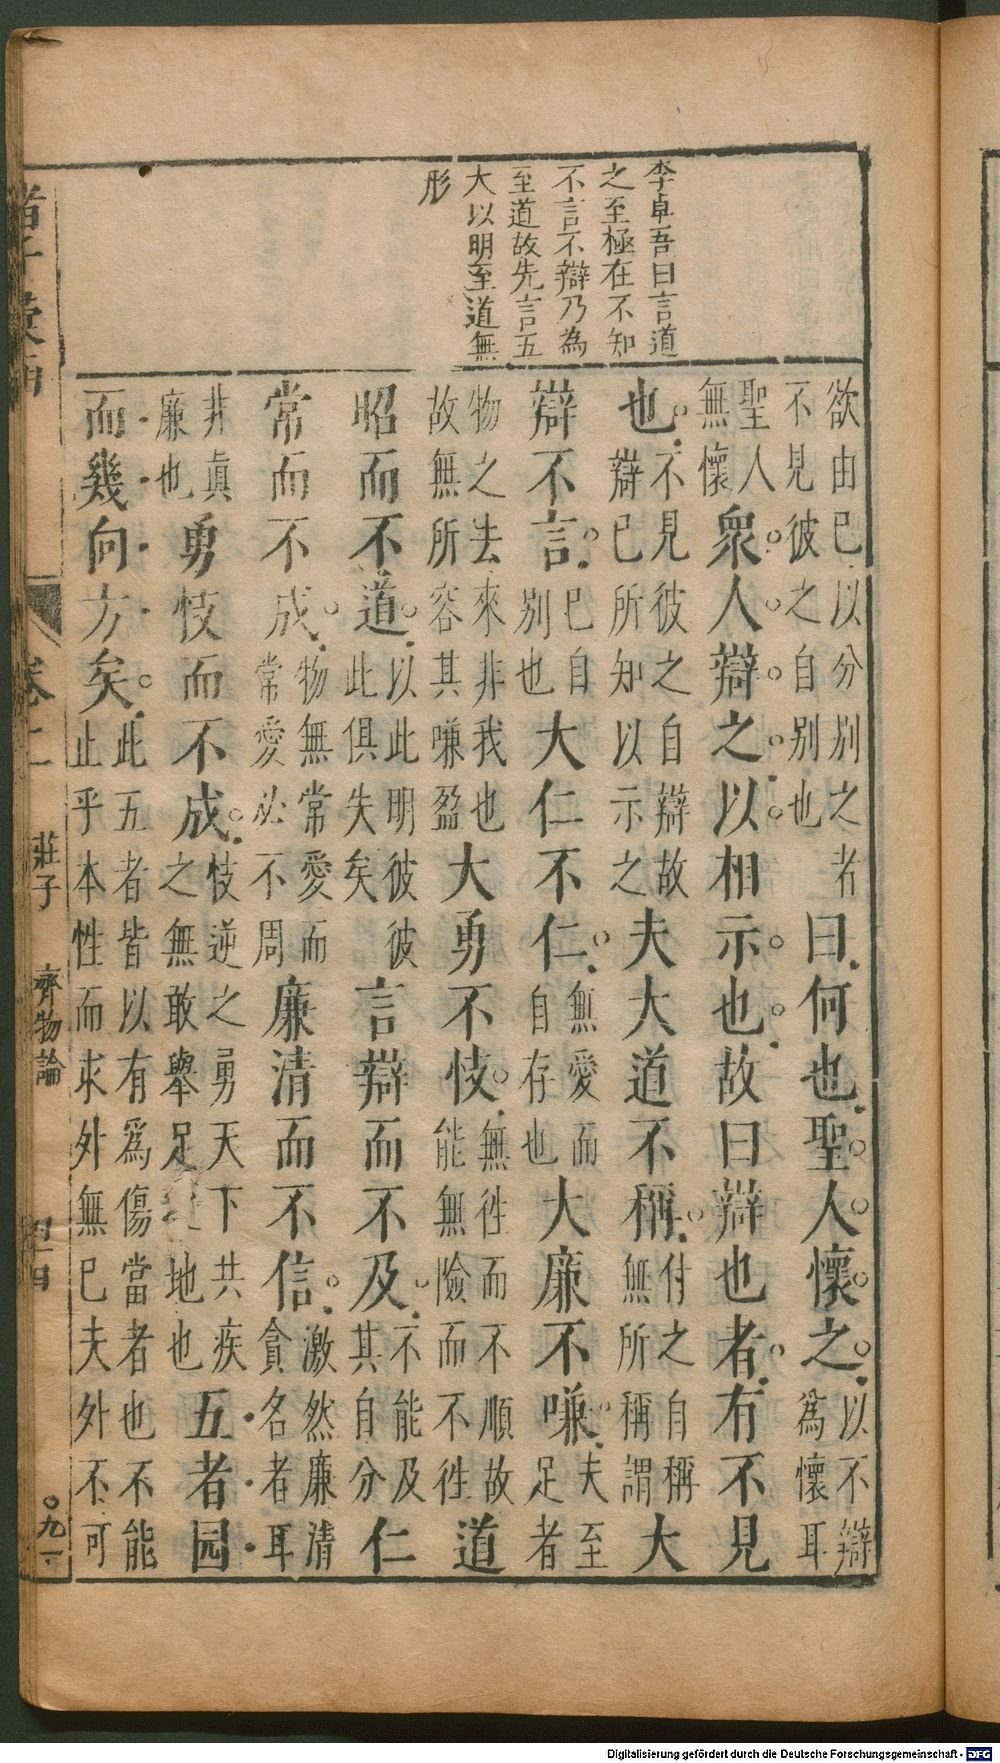 李卓吾曰言道
之至極在不知
不言不辯乃為
至道故先言五
大以明至道無
形
欲由已以分別之者不見彼之自別也曰何也聖人懷之以不辯為懷耳
聖人無懷衆人辯之以相示也故曰辯也者有不見
也不見彼之自辯故辯已所知以示之夫大道不稱付之自稱無所稱謂大
辯不言已自別也大仁不仁無愛而自存也大廉不嗛夫至足者
物之去來非我也故無所容其嗛盈大勇不忮無徃而不順故能無險而不徃道
昭而不道以此明彼彼此俱失矣言辯而不及不能及其自分仁
常而不成物無常愛而常愛必不周廉清而不信激然廉清貪名者耳
非眞廉也勇忮而不成忮逆之勇天下共疾之無敢舉足之地也五者园
而幾向方矣此五者皆以有爲傷當者也不能止乎本性而求外無已夫外不可
卷二 莊子 齊物論
Digitalisierung gefördert durch die Deutsche Forschungsgemeinschaft - DFG